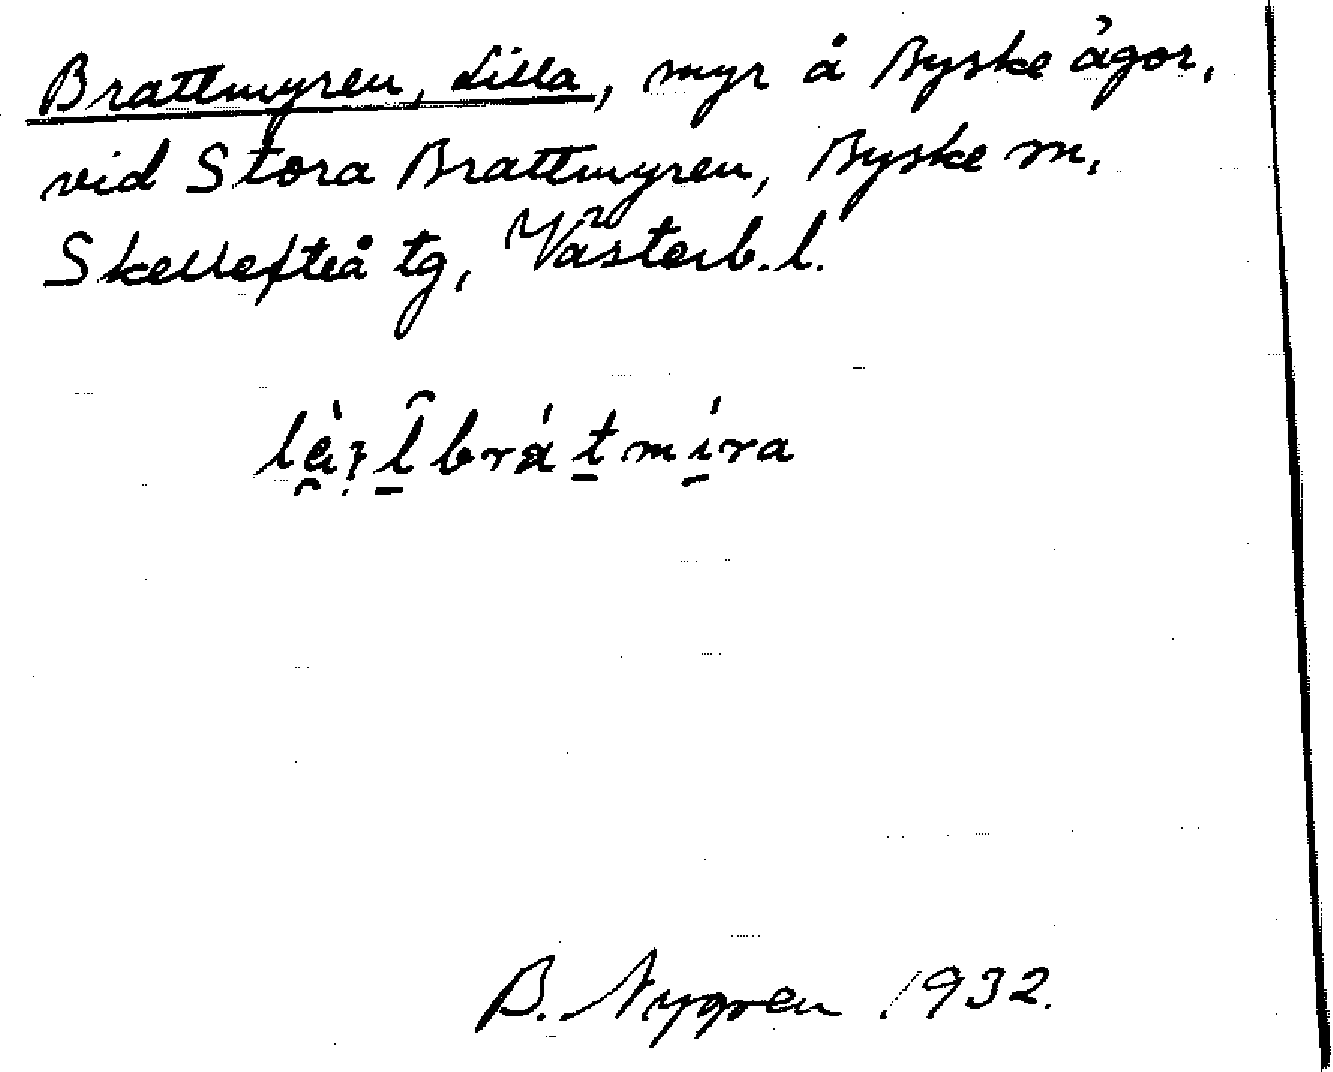 Brattmyren, Lilla, myr å Byske ägor,
vid Stora Brattmyren, Byske sn,
Skellefteå tg, Västerb. l.
B. Nygren 1932.